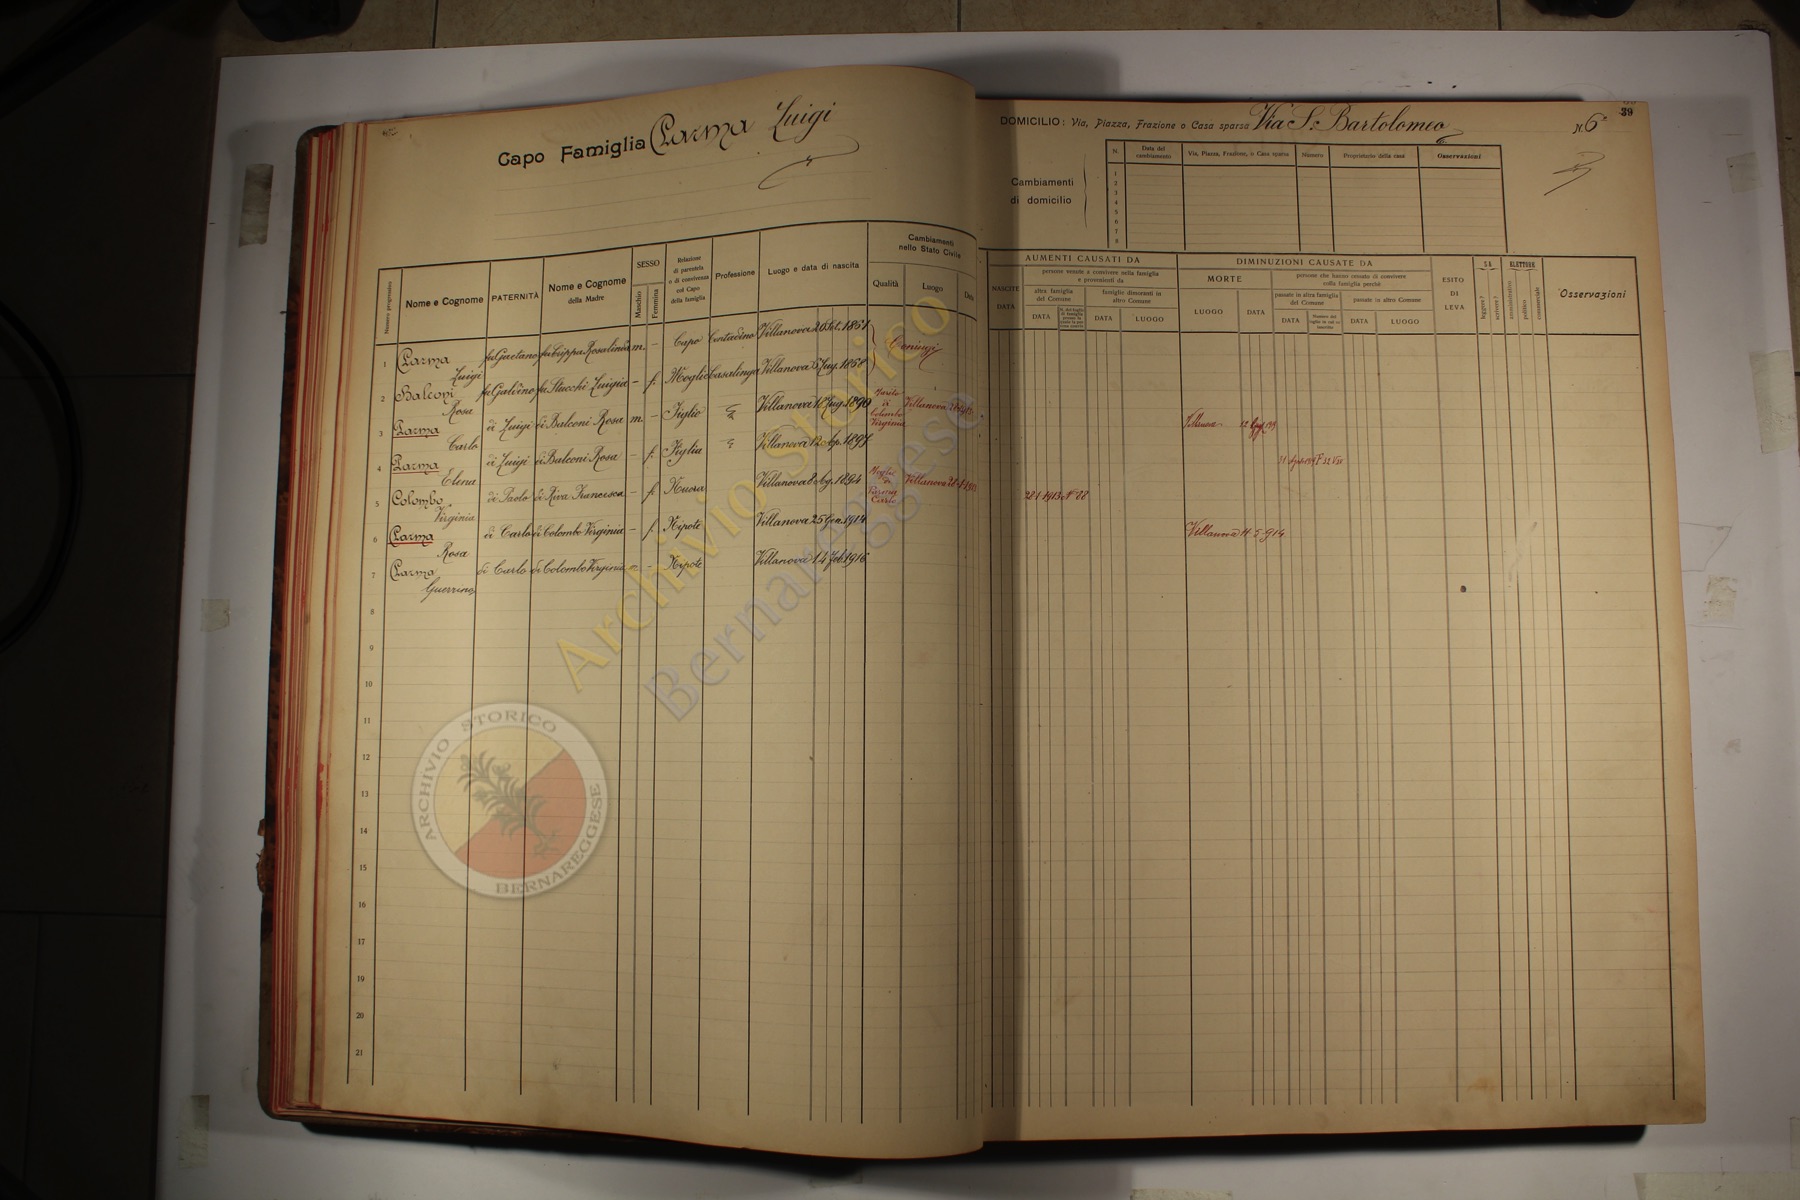 Capo Famiglia Parma Luigi
DOMICILIO: Via, Piazza, Frazione o Casa sparsa Via S. Bartolomeo N. 6
39
Cambiamenti di domicilio
N. Data del cambiamento Via, Piazza, Frazione, o Casa sparsa Numero Proprietario della casa Osservazioni
1
2
3
4
5
6
7
8
Numero progressivo
Nome e Cognome
PATERNITÀ
Nome e Cognome della Madre
SESSO
Maschio
Femmina
Relazione di parentela o di convivenza col Capo della famiglia
Professione
Luogo e data di nascita
Cambiamenti nello Stato Civile
Qualità Luogo Data
AUMENTI CAUSATI DA
NASCITE DATA
persone venute a convivere nella famiglia e provenienti da
altra famiglia del Comune
DATA
famiglie dimoranti in altro Comune
DATA LUOGO
DIMINUZIONI CAUSATE DA
MORTE
LUOGO DATA
persone che hanno cessato di convivere colla famiglia perchè
passate in altra famiglia del Comune
DATA
passate in altro Comune
DATA LUOGO
ESITO DI LEVA
SA
leggere?
scrivere?
ELETTORE
amministrativo
politico
commerciale
Osservazioni
1 Parma Luigi fu Gaetano fu Crippa Rosalinda m. - Capo Contadino Villanova 20 Set. 1851 Coniugi
2 Balconi Rosa fu Galdino fu Stucchi Luigia - f. Moglie Casalinga Villanova 5 Lug. 1858
3 Parma Carlo di Luigi di Balconi Rosa m. - Figlio Villanova 18 Lug. 1890 Marito di Colombo Virginia Villanova
4 Parma Elena di Luigi di Balconi Rosa - f. Figlia Villanova 12 Ap. 1897
5 Colombo Virginia di Paolo di Riva Francesca - f. Nuora Villanova 8 Ag. 1894 Moglie di Parma Carlo Villanova 28-1-1913 N° 88
6 Parma Rosa di Carlo di Colombo Virginia - f. Nipote Villanova 25 Gen. 1914 Villanova 11-5-914
7 Parma Guerrino di Carlo di Colombo Virginia m. - Nipote Villanova 14 Feb. 1916
8
9
10
11
12
13
14
15
16
17
18
19
20
21
Archivio Storico
Bernareggese
ARCHIVIO STORICO BERNAREGGESE